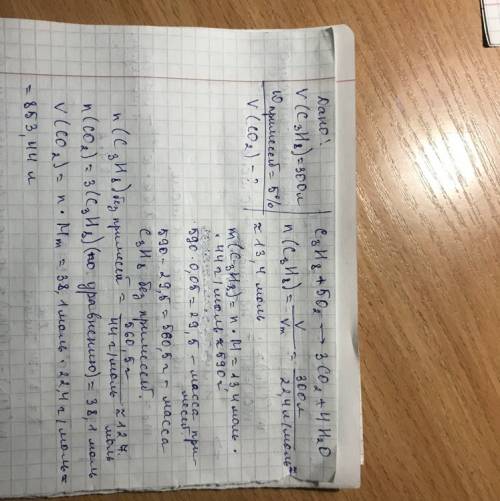 Дано:
V(C3H8)=300л
w примесей = 5%
V(CO2) - ?
C3H8 + 5O2 → 3CO2 + 4H2O
n(C3H8) = V/Vm = 300л/22,4л/моль ≈
≈ 13,4 моль
m(C3H8) = n · M = 13,4 моль ·
· 44 г/моль ≈ 590 г
590 · 0,05 = 29,5 - масса при-
месей
590 - 29,5 = 560,5 г - масса
C3H8 без примесей.
n(C3H8) без примесей = 560,5г/44 г/моль ≈ 12,7
моль
n(CO2) = 3(C3H8) (по уравнению) = 38,1 моль
V(CO2) = n · Mm = 38,1 моль · 22,4 г/моль =
= 853,44 л